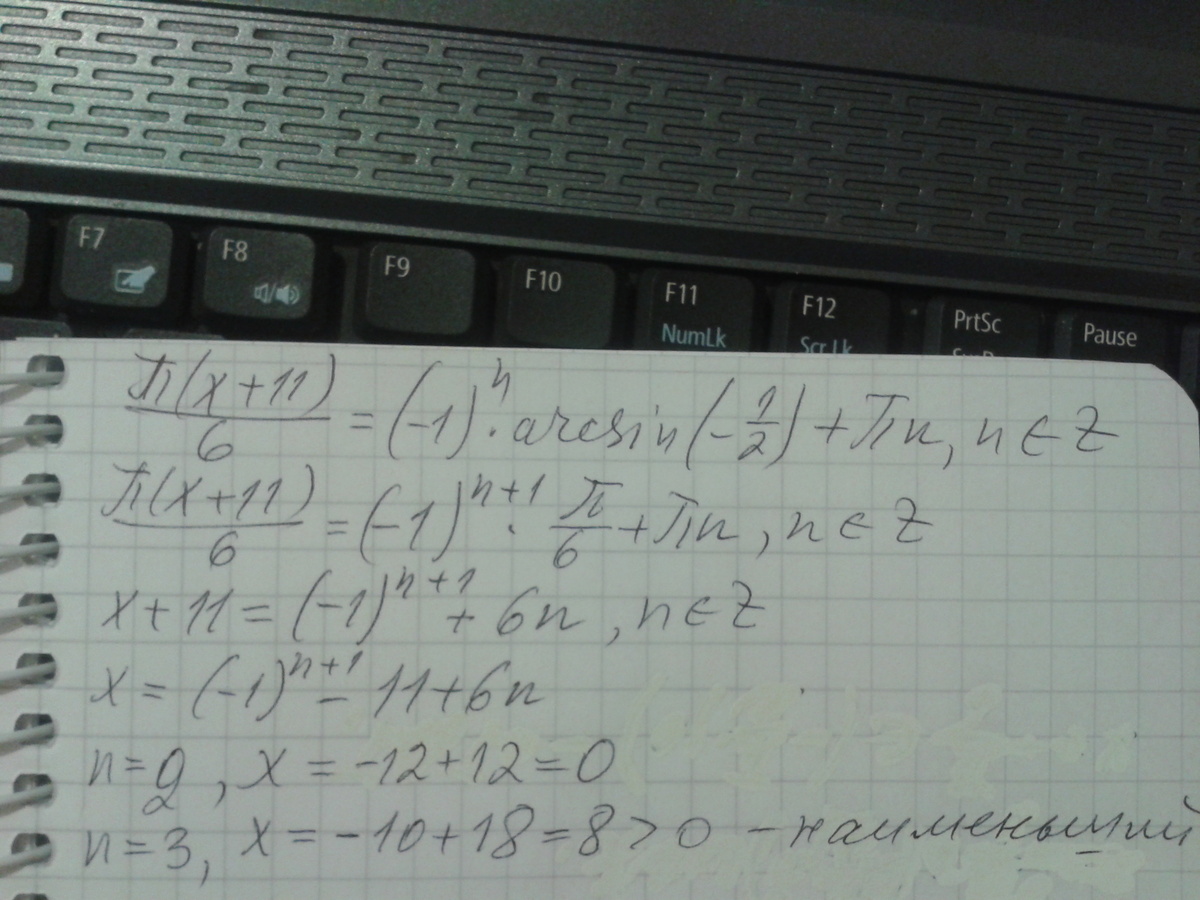 F7 F8 F9 F10 F11 F12 PrtSc Pause
NumLk Scr Lk
π(x+11)/6 = (-1)^n · arcsin(-1/2) + πn, n ∈ Z
π(x+11)/6 = (-1)^(n+1) · π/6 + πn, n ∈ Z
x + 11 = (-1)^(n+1) + 6n, n ∈ Z
x = (-1)^(n+1) - 11 + 6n
n = 2, x = -12 + 12 = 0
n = 3, x = -10 + 18 = 8 > 0 - наименьший